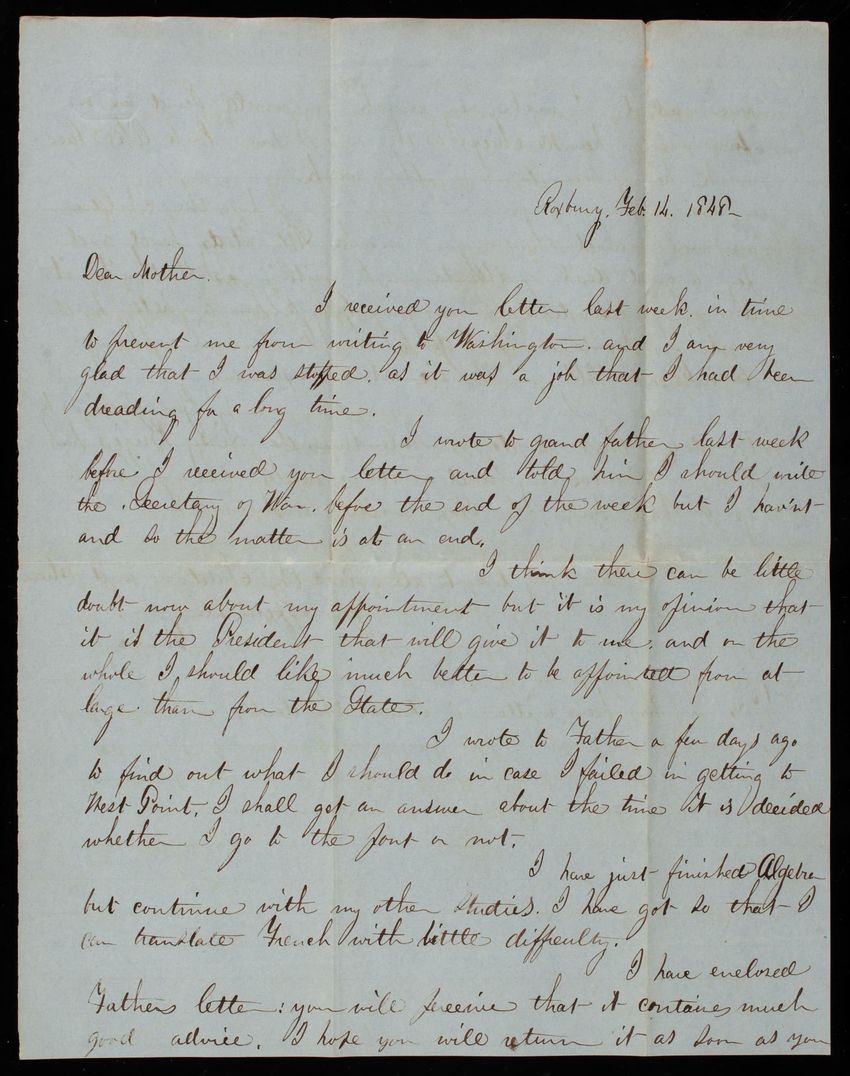 Roxbury. Feb. 14. 1848
Dear Mother.
I received your letter last week. in time
to prevent me from writing to Washington. and I am very
glad that I was stopped. as it was a job that I had been
dreading for a long time.
I wrote to grand father last week
before I received your letter and told him I should write
the Secretary of War. before the end of the week but I hav'nt
and so the matter is at an end.
I think there can be little
doubt now about my appointment but it is my opinion that
it is the President that will give it to me. and on the
whole I should like much better to be appointed from at
large than from the State.
I wrote to Father a few days ago
to find out what I should do in case I failed in getting to
West Point. I shall get an answer about the time it is decided
whether I go to the point or not.
I have just finished Algebra
but continue with my other studies. I have got so that I
can translate French with little difficulty.
I have enclosed
Fathers letter: you will perceive that it contains much
good advice. I hope you will return it as soon as you